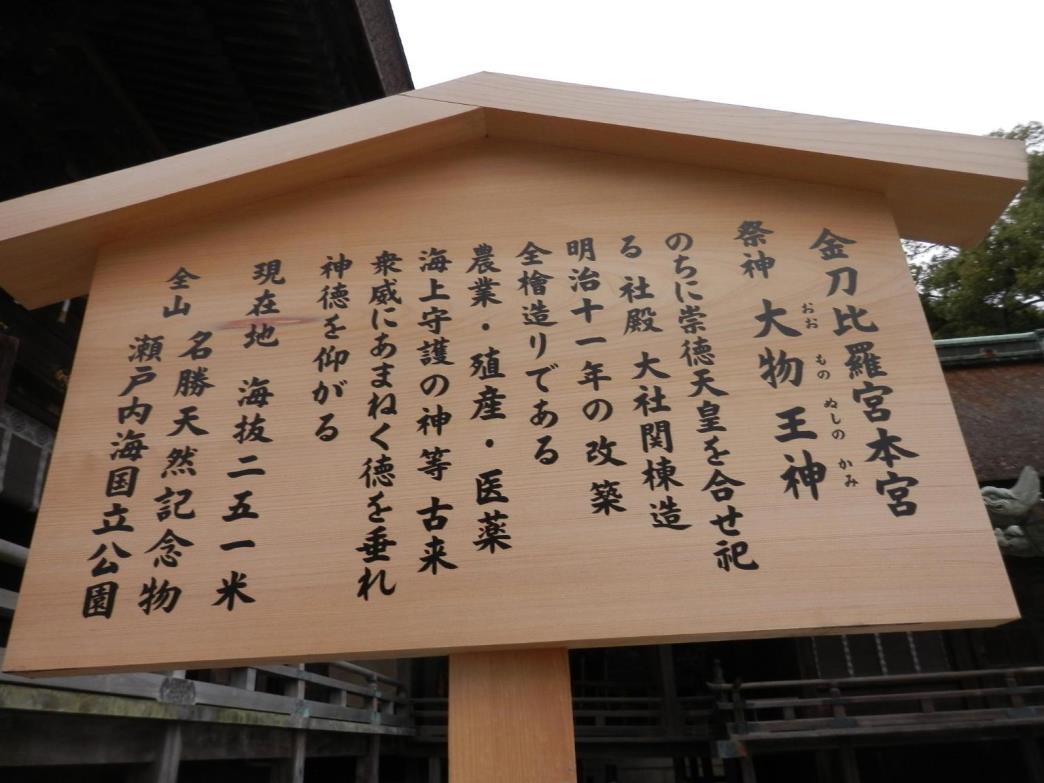 金刀比羅宮本宮
祭神 大物王神
おお もの ぬしの かみ
のちに崇徳天皇を合せ祀
る 社殿 大社関棟造
明治十一年の改築
全檜造りである
農業・殖産・医薬
海上守護の神等 古来
衆威にあまねく徳を垂れ
神徳を仰がる
現在地 海抜二五一米
全山 名勝天然記念物
瀬戸内海国立公園